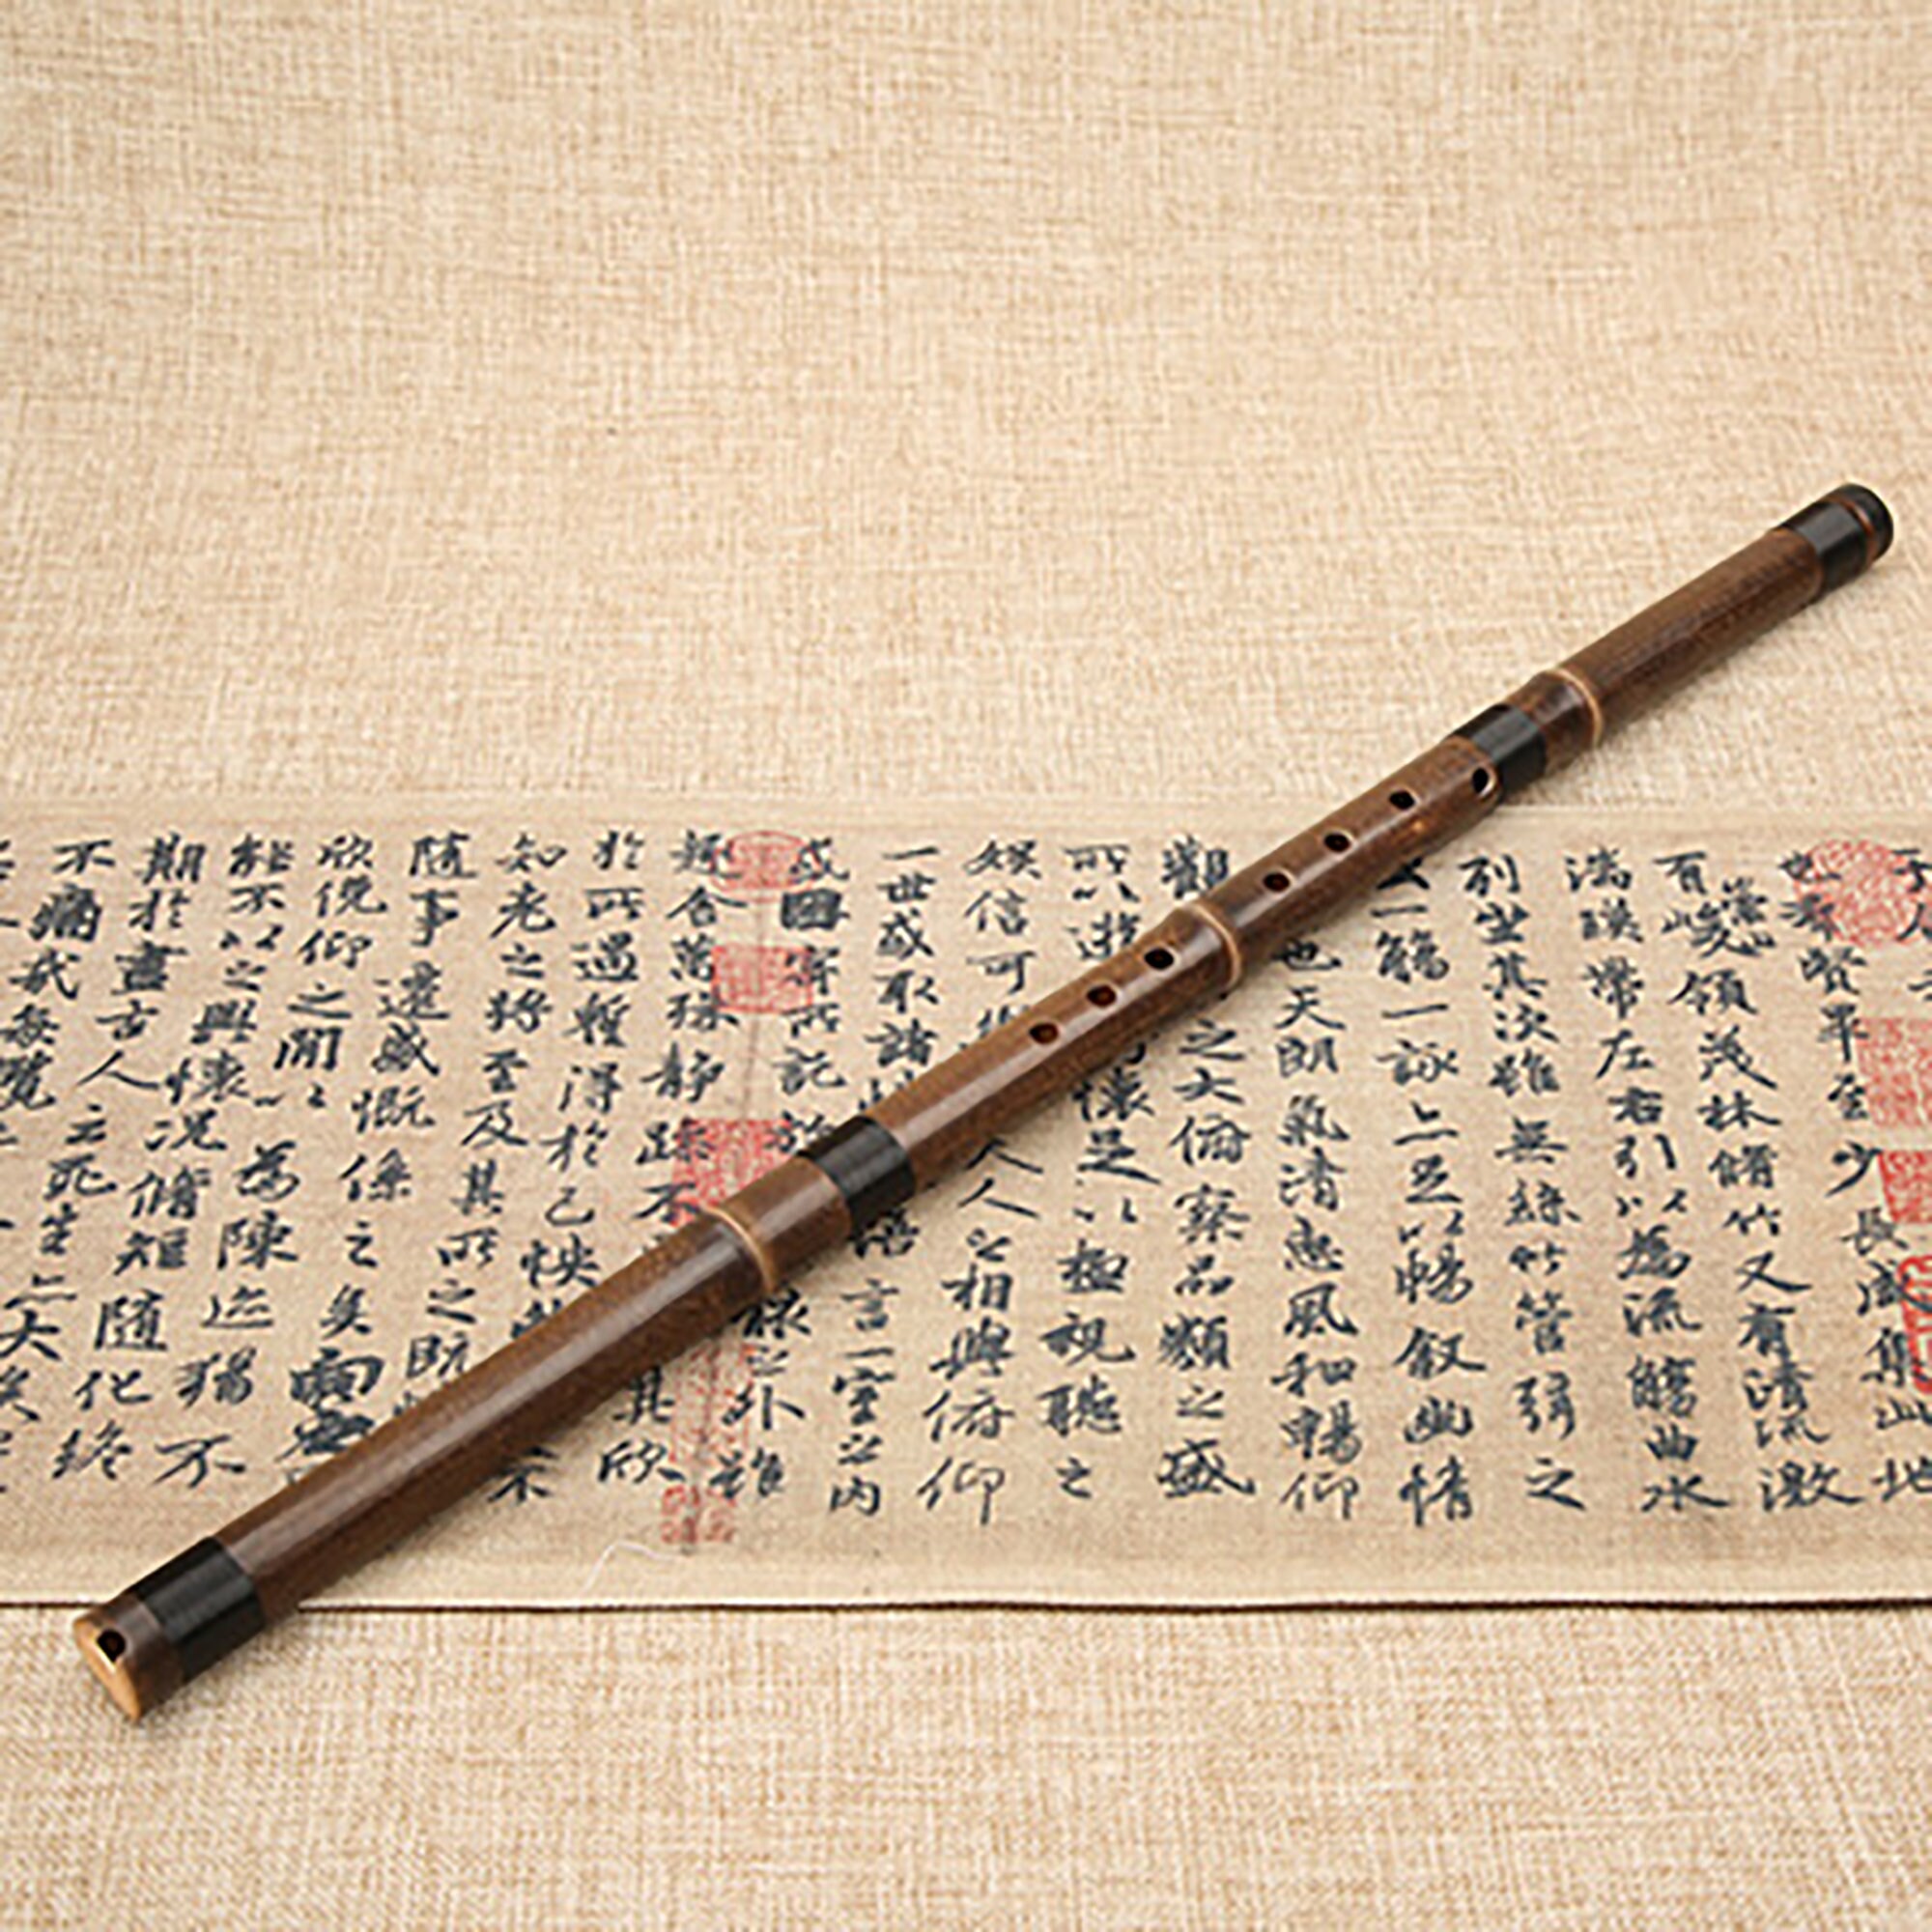 也羣賢畢至少長咸集此地
有崇山峻領茂林脩竹又有清流激
湍暎帶左右引以為流觴曲水
列坐其次雖無絲竹管弦之
一觴一詠亦足以暢敘幽情
也天朗氣清惠風和暢仰
觀之大俯察品類之盛
所以遊懷足以極視聽之
娛信可人之相與俯仰
一世或取諸悟言一室之內
或因寄所託放之外雖
趣舍萬殊靜躁不其欣
於所遇暫得於己怏不
知老之將至及其所之既
隨事遷感慨係之矣向
欣俛仰之閒以為陳迹猶不
能不以之興懷況脩短隨化終
期於盡古人云死生亦大矣
不痛哉每攬